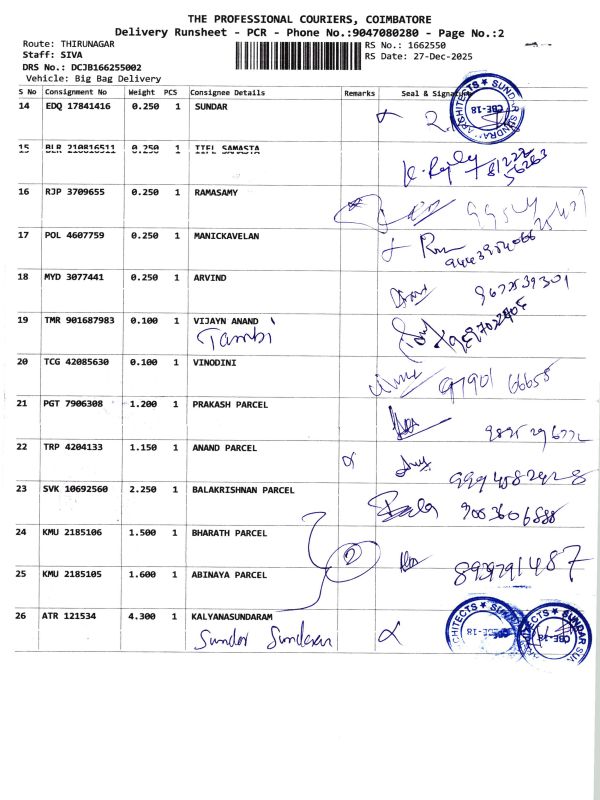 THE PROFESSIONAL COURIERS, COIMBATORE
Delivery Runsheet - PCR - Phone No.:9047080280 - Page No.:2
Route: THIRUNAGAR RS No.: 1662550
Staff: SIVA RS Date: 27-Dec-2025
DRS No.: DCJB166255002
Vehicle: Big Bag Delivery
S No Consignment No Weight PCS Consignee Details Remarks Seal & Signature
14 EDQ 17841416 0.250 1 SUNDAR
ARCHITECTS ★ SUNDAR CBE-18
15 BLR 210816511 0.250 1 IIFL SAMASTA
16 RJP 3709655 0.250 1 RAMASAMY
17 POL 4607759 0.250 1 MANICKAVELAN
18 MYD 3077441 0.250 1 ARVIND
9677539301
19 TMR 901687983 0.100 1 VIJAYN ANAND
Tambi
20 TCG 42085630 0.100 1 VINODINI
97901 66658
21 PGT 7906308 1.200 1 PRAKASH PARCEL
22 TRP 4204133 1.150 1 ANAND PARCEL
23 SVK 10692560 2.250 1 BALAKRISHNAN PARCEL
Bala 9003606888
24 KMU 2185106 1.500 1 BHARATH PARCEL
2
8939791487
25 KMU 2185105 1.600 1 ABINAYA PARCEL
26 ATR 121534 4.300 1 KALYANASUNDARAM
Sundar Sundaram
HITECTS ★ SUN CBE-18
HITECTS ★ SUNDAR SUN CBE-18